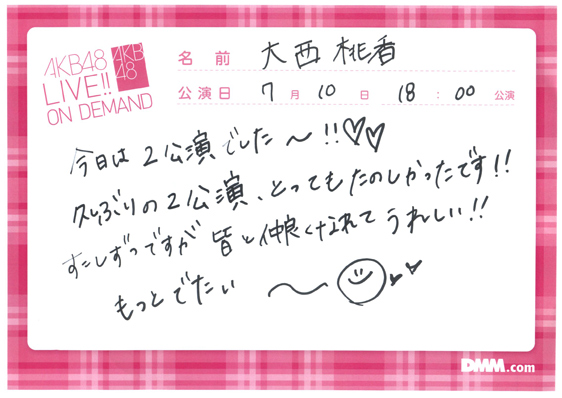 AKB48
LIVE!!
ON DEMAND
AKB
48
名前 大西桃香
公演日 7月10日 18:00公演
今日は2公演でした〜!!♡♡
久しぶりの2公演、とってもたのしかったです!!
すこしずつですが皆と仲良くなれてうれしい!!
もっとでたい〜
DMM.com